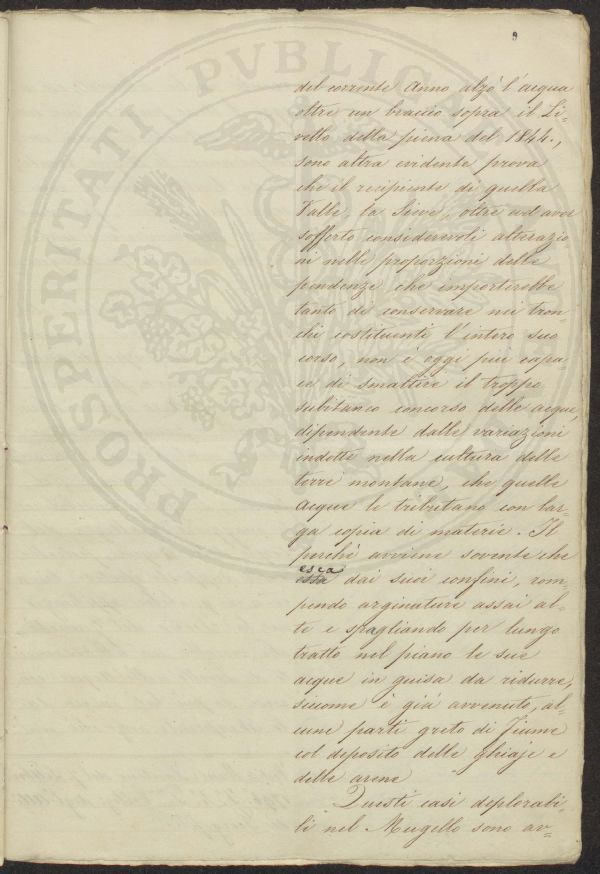 9
PROSPERITATI PVBLICAE
del corrente Anno alzò l'acqua
oltre un braccio sopra il Li=
vello della piena del 1844.,
sono altra evidente prova
che il recipiente di quella
Valle, la Sieve, oltre ad aver
sofferto considerevoli alterazio
ni nelle proporzioni delle
pendenze che importerebbe
tanto di conservare nei tron=
chi costituenti l'intero suo
corso, non è oggi più capa=
ce di smaltire il troppo
subitaneo concorso delle acque,
dipendente dalle variazioni
indotte nella cultura delle
terre montane, che quelle
acque le tributano con lar=
ga copia di materie. Il
perchè avviene sovente che
esca
dai suoi confini, rom=
pendo arginature assai al=
te e spagliando per lungo
tratto nel piano le sue
acque in guisa da ridurre,
siccome è già avvenuto, al=
cune parti greto di Fiume
col deposito delle ghiaje e
delle arene
Questi casi deplorabi=
li nel Mugello sono av=